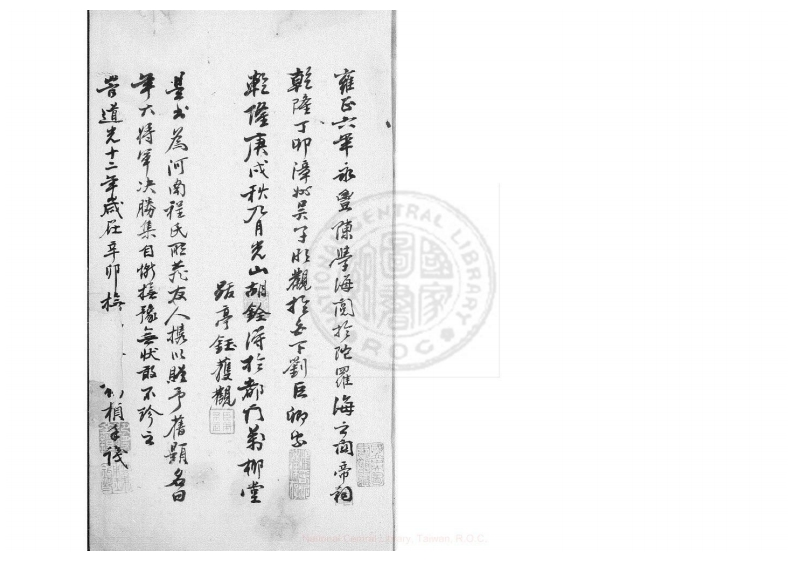 雍正六年永豐陳學海閲於陀羅海之關帝祠
乾隆丁卯漳州吳子肜觀於都下劉巨卿家
乾隆庚戌秋九月光山胡銓得於都門萬柳堂
跕亭鈺獲觀
是書為河南程氏所藏友人攜以贈予舊題名曰
年大將軍決勝集自慚撫豫無狀敢不珍之
旹道光十二年歲在辛卯
楨手識
NATIONAL CENTRAL LIBRARY
ROC
國家圖書
National Central Library, Taiwan, R.O.C.